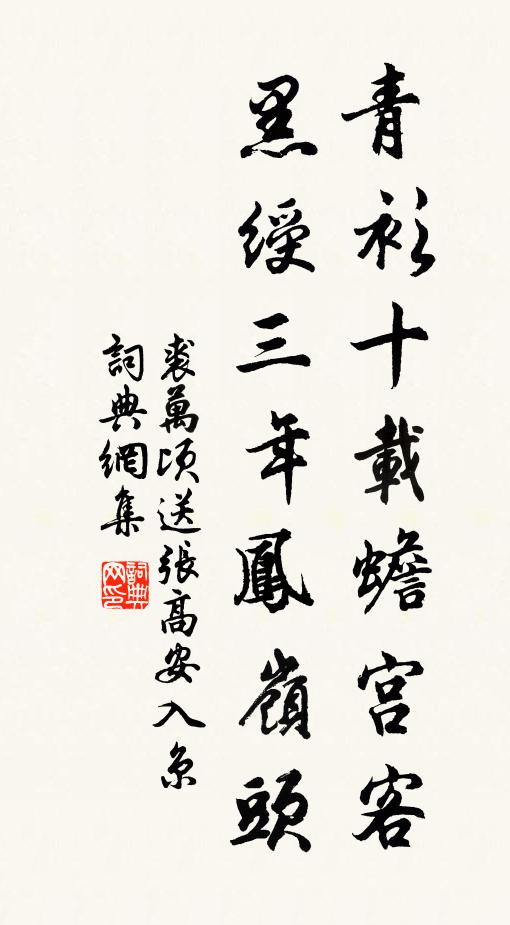 青衫十載蟾宮客
黑綬三年鳳嶺頭
裘萬頃送張高安入京
詞典網集
詞典网印